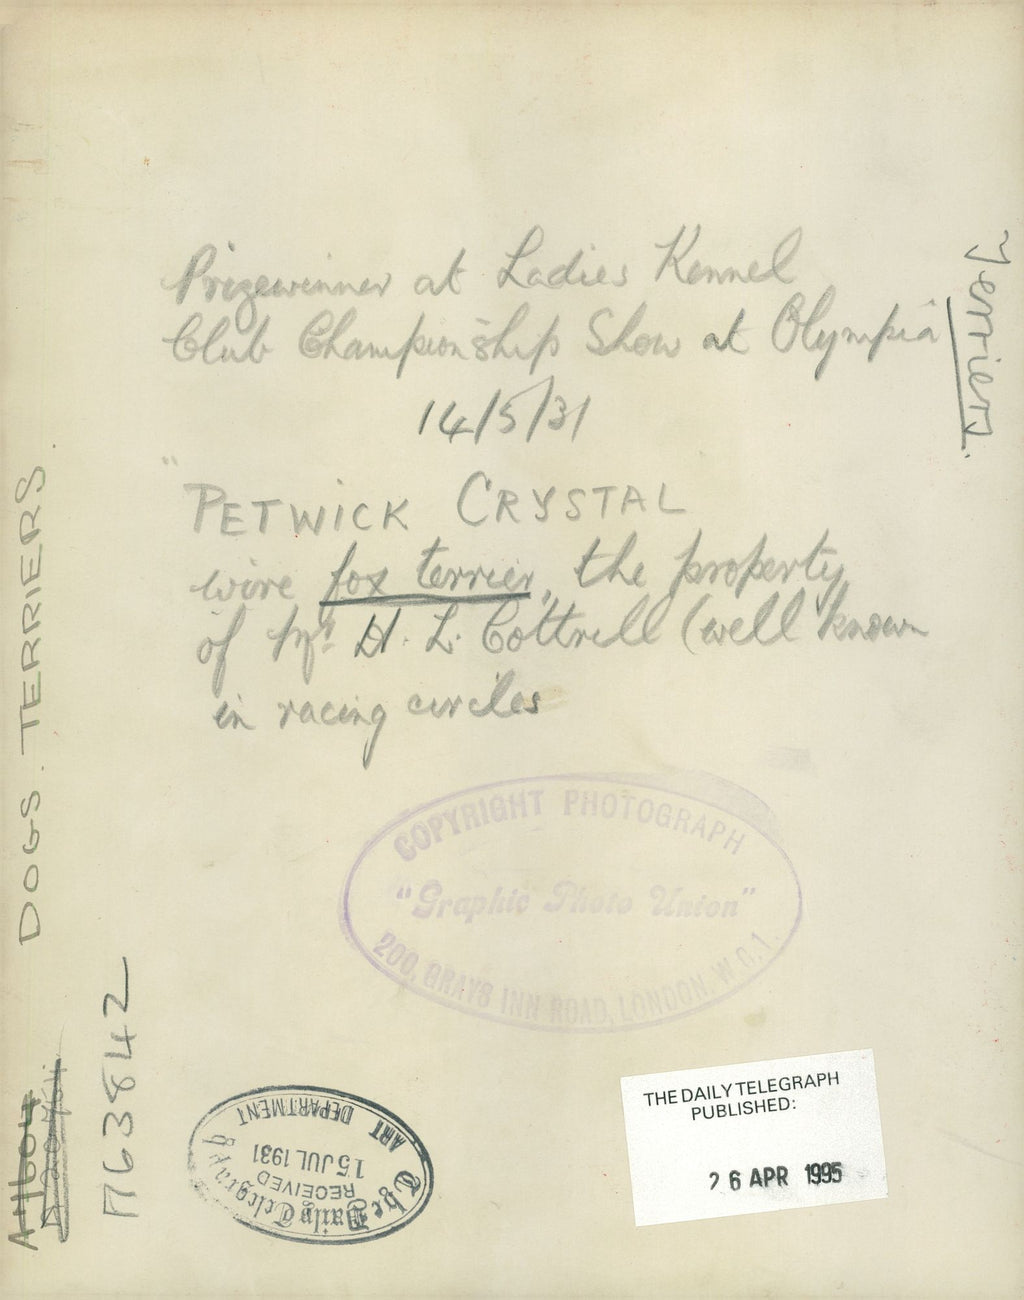 Prizewinner at Ladies Kennel
Club Championship Show at Olympia
14/5/31
"PETWICK CRYSTAL
wire fox terrier, the property
of Mrs H. L. Cottrell (well known
in racing circles
Terriers.
DOGS. TERRIERS.
M63842
COPYRIGHT PHOTOGRAPH
"Graphic Photo Union"
200, GRAYS INN ROAD, LONDON, W.C.1.
The Daily Telegraph
RECEIVED
15 JUL 1931
ART DEPARTMENT
THE DAILY TELEGRAPH
PUBLISHED:
26 APR 1995